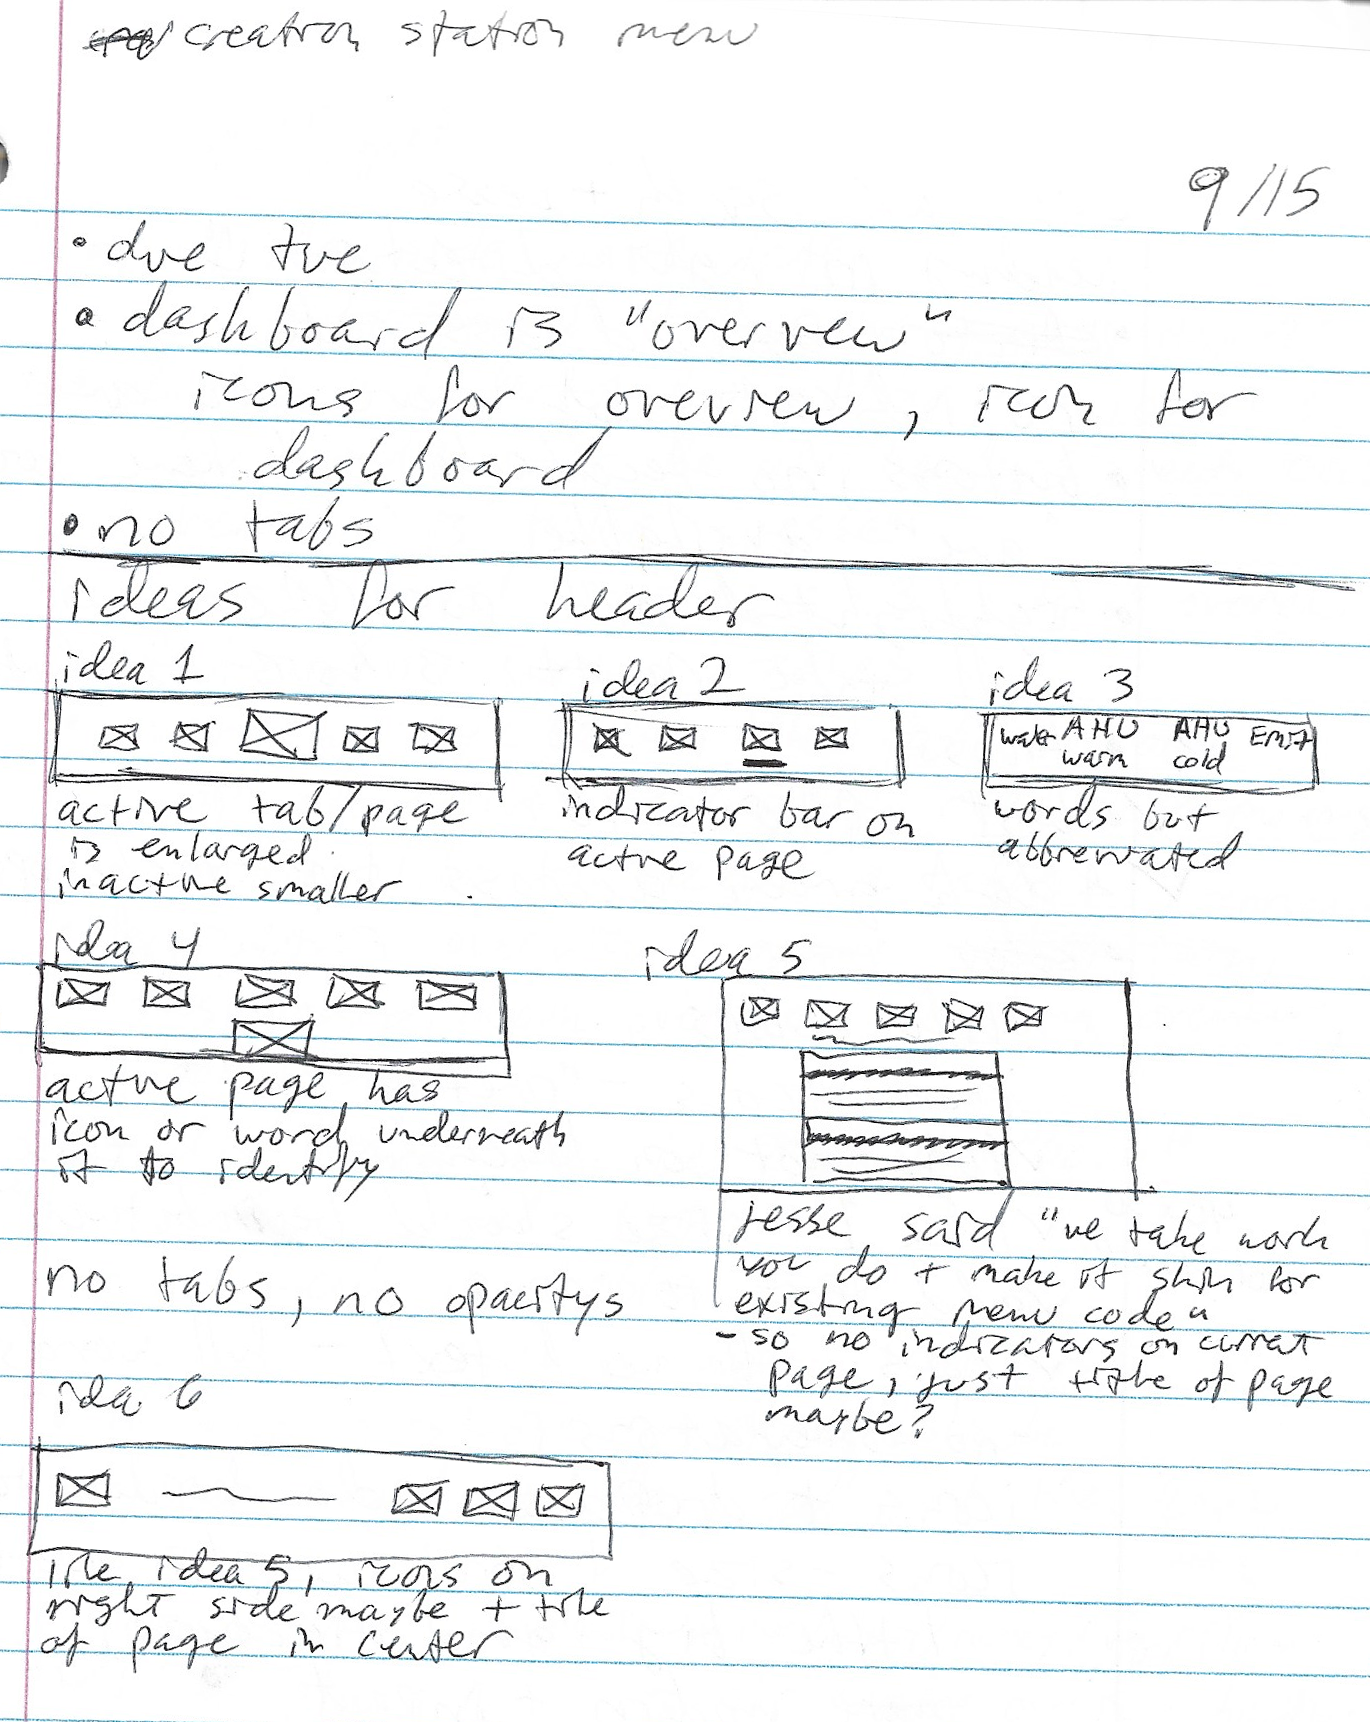 creation station menu
9/15
• due tue
• dashboard is "overvew"
icons for overview, icon for
dashboard
• no tabs
ideas for header
idea 1
idea 2
idea 3
water AHU AHU Emit
warm cold
active tab/page
is enlarged
inactive smaller
indicator bar on
active page
words but
abbreviated
idea 4
idea 5
active page has
icon or word underneath
it to identify
Jesse said "we take work
you do + make it skin for
existing menu code"
- so no indicators on current
page, just title of page
maybe?
no tabs, no opacitys
idea 6
like idea 5, icons on
right side maybe + title
of page in center